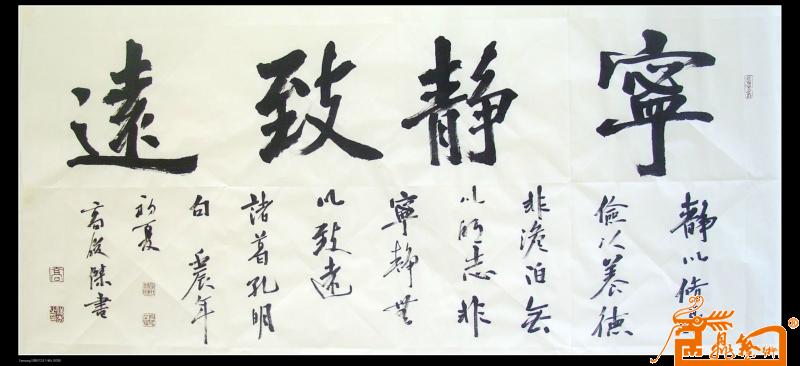 寧静致遠
静以修
儉以養德
非澹泊無
以明志非
寧静無
以致遠
諸葛孔明
句 辰年
初夏
高俊傑書